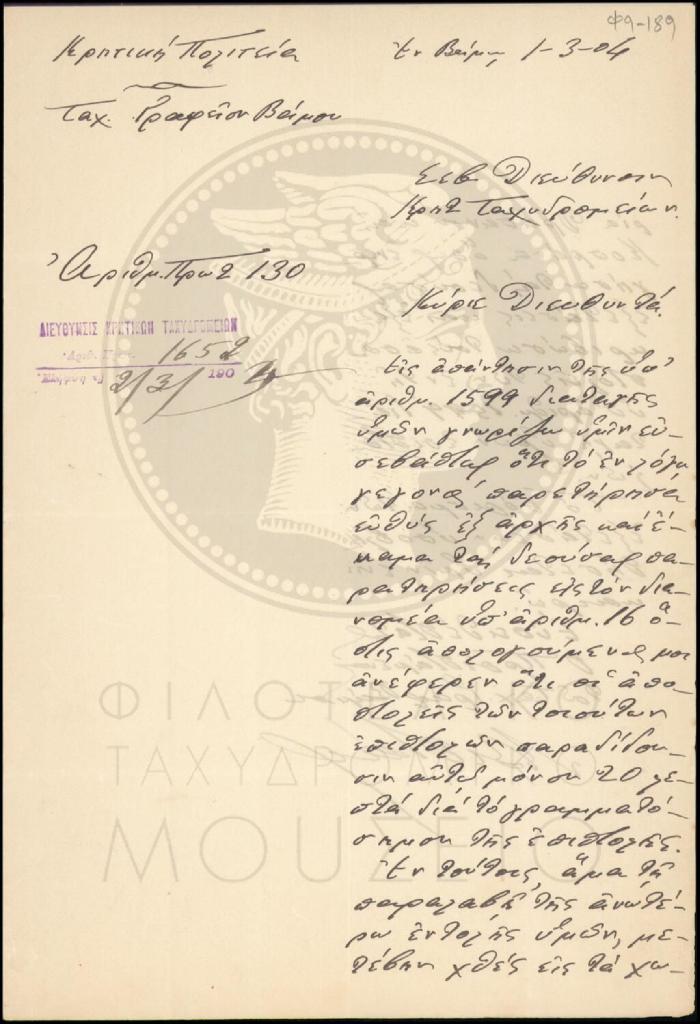 Φ9-189
Κρητική Πολιτεία
Ἐν Βάμῳ 1-3-04
Ταχ. Γραφεῖον Βάμου
Σεβ Διεύθυνσιν
Κρητ Ταχυδρομείων.
Ἀριθμ. Πρωτ 130
Κύριε Διευθυντά.
ΔΙΕΥΘΥΝΣΙΣ ΚΡΗΤΙΚΩΝ ΤΑΧΥΔΡΟΜΕΙΩΝ
Ἀριθ. Πρωτ. 1652
2/3/1904
Εἰς ἀπάντησιν της ὑπ'
ἀριθμ. 1599 διαταγῆς
ὑμῶν γνωρίζω ὑμῖν εὐ-
σεβάστως ὅτι τὸ ἐν λόγῳ
γεγονός παρετήρησα
εὐθύς ἐξ ἀρχῆς καί ἔ-
καμα τάς δεούσας πα-
ρατηρήσεις εἰς τόν δια-
νομέα ὑπ' ἀριθμ. 16 ὅ-
στις ἀπολογούμενός μοι
ἀνέφερεν ὅτι οἱ ἀπο-
στολεῖς τῶν τοιούτων
ἐπιστολῶν παραδίδου-
σιν αὐτῷ μόνον 20 λε-
πτά διά τό γραμματό-
σημον της ἐπιστολῆς.
Ἐν τούτοις, ἅμα τῇ
παραλαβῇ της ἀνωτέ-
ρω ἐντολῆς ὑμῶν, με-
τέβην χθές εἰς τά χω-
ΦΙΛΟΤΕΛΙΚΟ
ΤΑΧΥΔΡΟΜΙΚΟ
ΜΟΥΣΕΙΟ